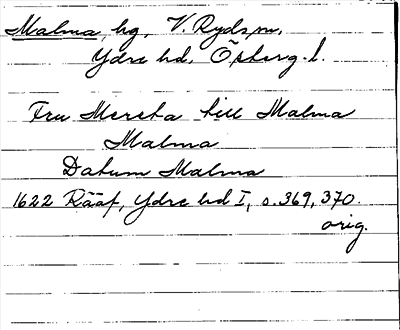 Malma, hg, V. Ryds sn,
Ydre hd, Österg. l.
Fru Mereta till Malma
Malma
Datum Malma
1622 Rääf, Ydre hd I, s. 369, 370.
orig.